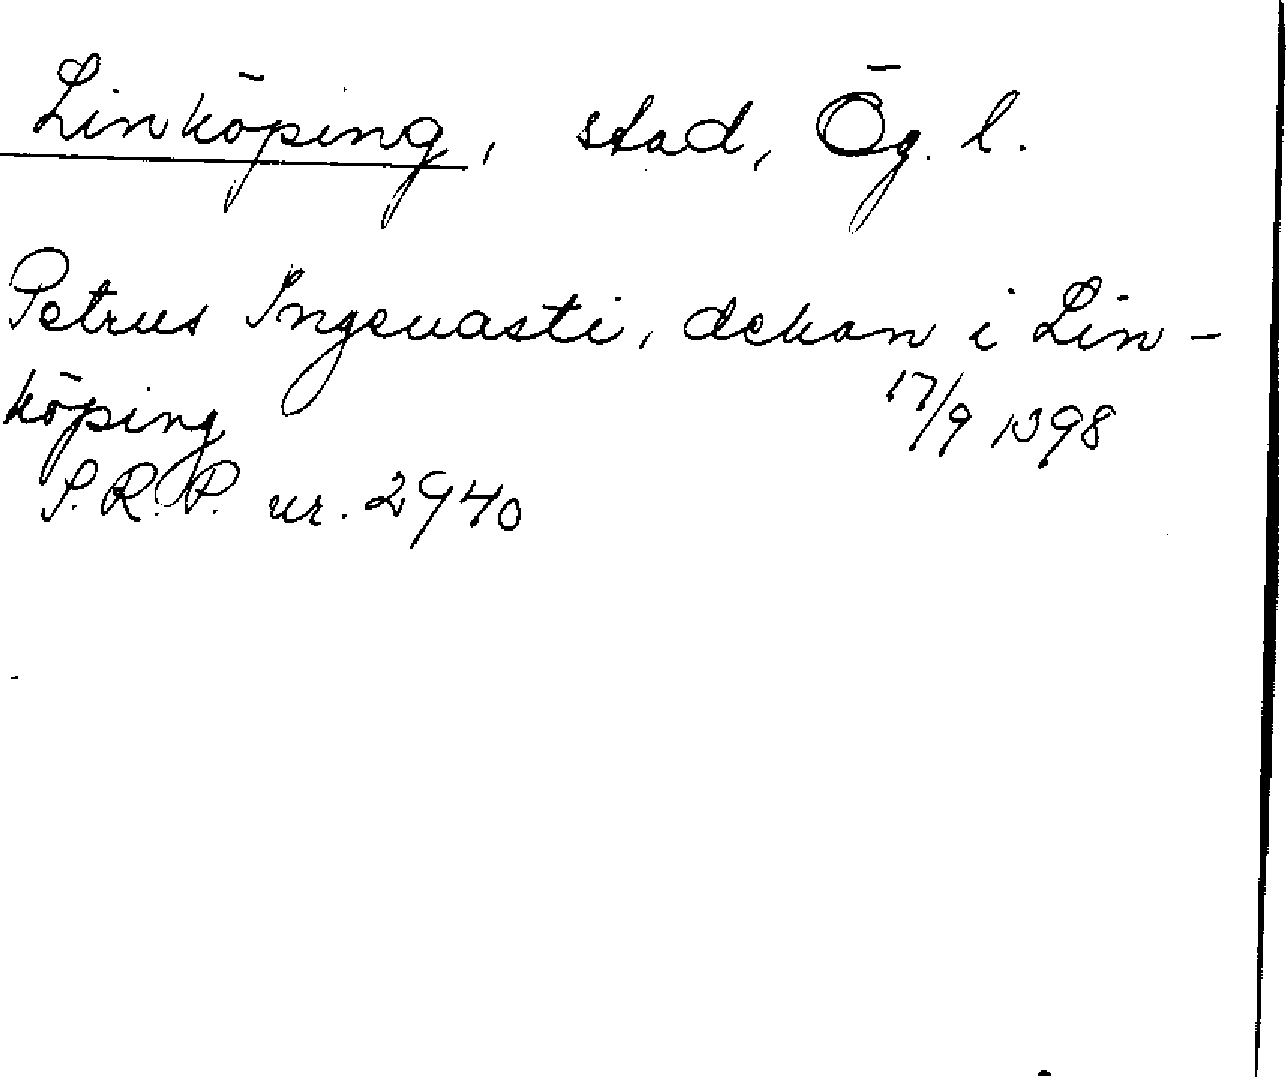 Linköping, stad, Ög. l.
Petrus Ingeuasti, dekan i Lin-
köping 17/9 1398
S.R.P. nr. 2940